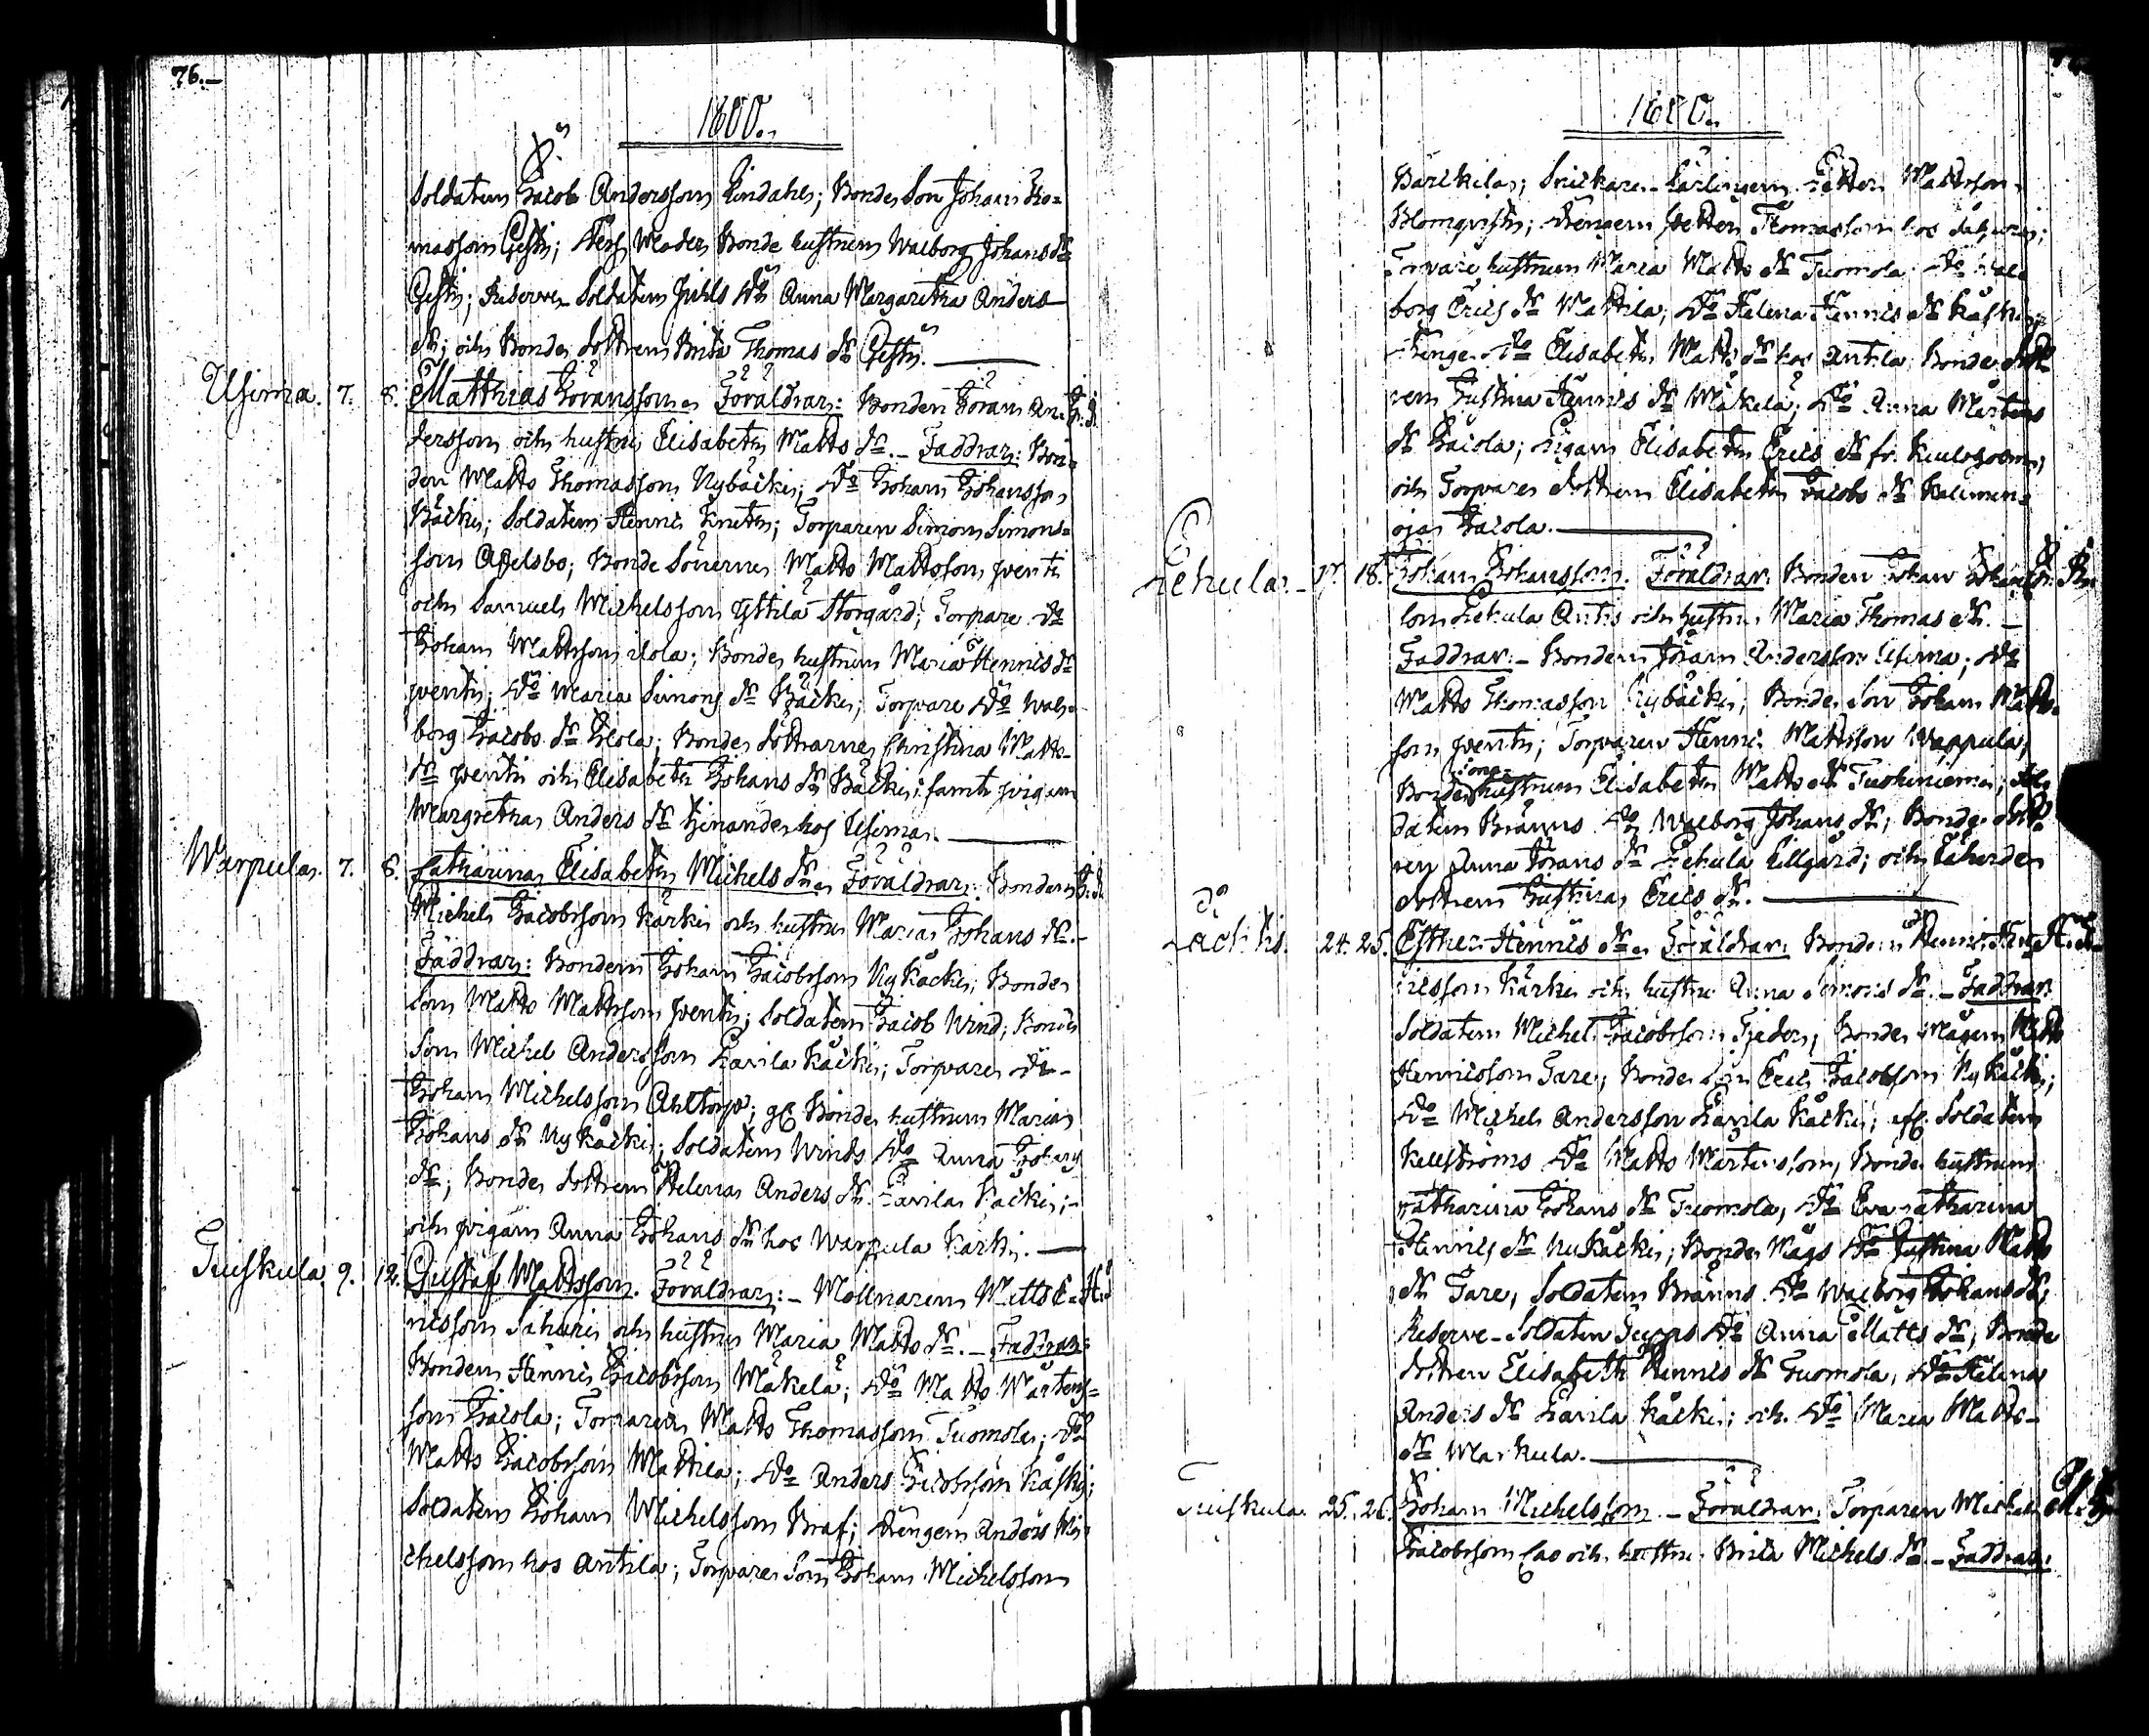 76.
1800.
Soldaten Jacob Andersson Lindahl; Bonde Son Johan Tho=
masson Gestri; Bonde hustrun Walborg Johans dr
Gestri; Reserve Soldaten Juhls do Anna Margaretha Anders
dr; och Bonde dottren Brita Thomas dr Gestri.
Usima. 7. 8. Matthias Göransson. Föräldrar: Bonden Göran An=
dersson och hustru Elisabeth Matts dr. Faddrar: Bon=
den Matts Thomasson Nybäcki; do Johan Johansson
Bäcki; Soldaten Henric Knuth; Torparen Simon Simons=
son Apelsbo; Bonde Sönerne Matts Mattsson Pentti
och Samuel Michelsson Yttilä Storgård; Torpare do
Johan Mattsson Ilola; Bonde hustrun Maria Henrics dr
Pentti; do Maria Simons dr Bäcki; Torpare do Wal=
borg Jacobs dr Ilola; Bonde döttrarne Christina Matts
dr Pentti och Elisabeth Johans dr Bäcki; samt pigan
Margretha Anders dr tjenande hos Usima.
Warpula. 7. 8. Catharina Elisabeth Michels dr. Föräldrar: Bonden
Michel Jacobsson Kärki och hustru Maria Johans dr.
Faddrar: Bonden Johan Jacobsson Nykäcki; Bonde
Son Matts Mattsson Pentti; Soldaten Jacob Wind; Bonde
Son Michel Andersson Lavila Käcki; Torpare do
Johan Michelsson Ahltorp; Bonde hustrun Maria
Johans dr Nykäcki; Soldaten Winds do Anna Johans
dr; Bonde dottren Helena Anders dr Lavila Käcki;
och pigan Anna Johans dr hos Warpula Kärki.
Tuiskula 9. 12. Gustaf Mattsson. Föräldrar: Mölnaren Matts E=
ricsson Sahari och hustru Maria Matts dr. Faddrar:
Bonden Henric Jacobsson Mäkelä; do Matts Mårtens=
son Jaicola; Torparen Matts Thomasson Tuomola; do
Matts Jacobsson Mattila; do Anders Jacobsson Käski;
Soldaten Johan Michelsson Braf; Drengen Anders Mi=
chelsson hos Antila; Torpare Son Johan Michelsson
1800.
Bärlkila; Snickare Lärlingen Petter Mattsson
Blomqvist; Drengen Petter Thomasson hos Sahari;
Torpare hustrun Maria Matts dr Tuomola; do Wal
borg Erics dr Mattila; do Helena Henrics dr Käski;
Drenge do Elisabeth Matts dr hos Antila; Bonde dott
ren Justina Henrics dr Mäkelä; do Anna Mårtens
dr Jaicola; Pigan Elisabeth Erics dr fr.
och Torpare dottren Elisabeth Jacobs dr
oja Jaicola.
Lehula. 17. 18. Johan Johansson. Föräldrar: Bonden Johan Johans
son Lehula Antis och hustru Maria Thomas dr.
Faddrar: Bonden Göran Andersson Usima; do
Matts Thomasson Nybäcki; Bonde Son Johan Matts=
son Pentti; Torparen Henric Mattsson Warpula;
Bonde Sons hustrun Elisabeth Matts dr Tuohiniemi; Sol
daten Branns do Walborg Johans dr; Bonde dott
ren Anna Görans dr Lehula Ellgård; och
dottren Justina Erics dr.
do
Lachtis. 24. 25. Esther Henrics dr. Föräldrar: Bonden Henric Hen
ricsson Kärki och hustru Anna Simons dr. Faddrar:
Soldaten Michel Jacobsson Fjeder; Bonde Mågen Matts
Henricsson Tare; Bonde Son Eric Jacobsson Nykäcki;
do Michel Andersson Lavila Käcki; Soldaten
Kellströms do Matts Mårtensson, Bonde hustrun
Catharina Johans dr Tuomola, do Eva Catharina
Henrics dr Nykäcki; Bonde Mågs do Justina Matts
dr Tare, Soldaten Branns do Walborg Johans dr;
Reserve Soldaten do Anna Matts dr; Bonde
dottren Elisabeth Henrics dr Tuomola, do Helena
Anders dr Lavila Käcki; och do Maria Matts
dr Markula.
Tuiskula. 25. 26. Johan Michelsson. Föräldrar: Torparen Michel
Jacobsson och hustru Brita Michels dr. Faddrar: